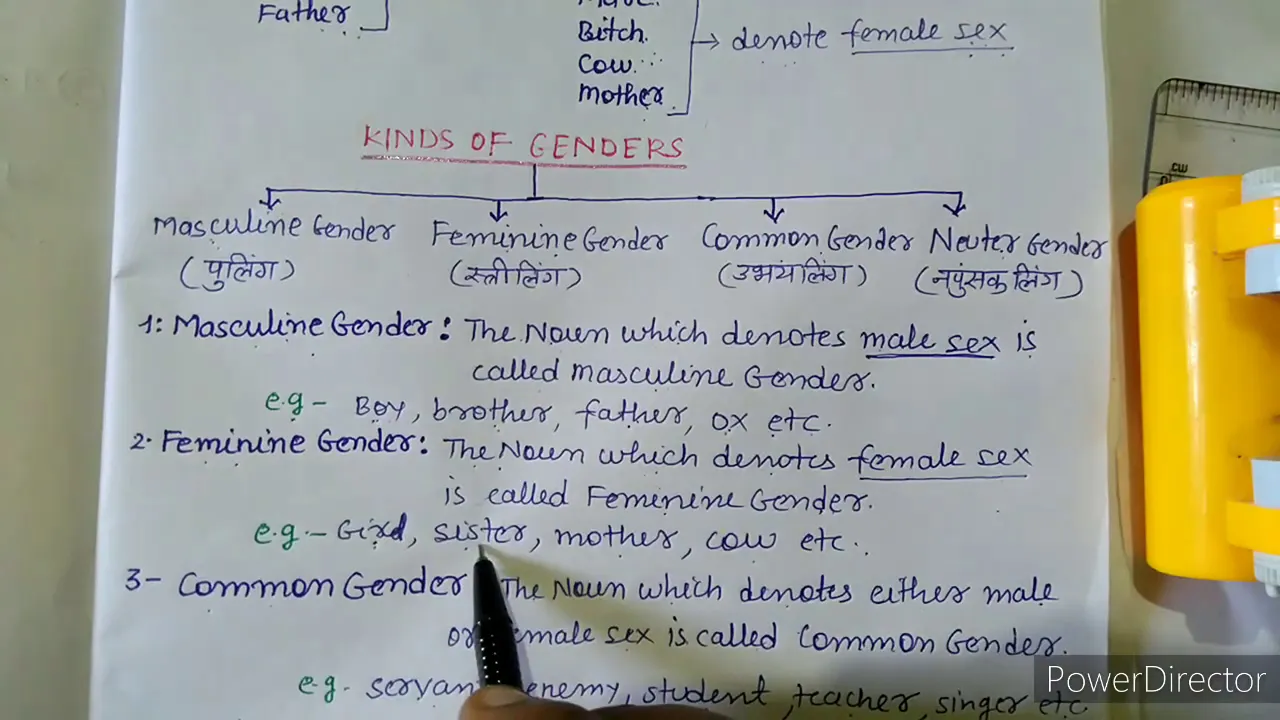 Father
Bitch.
Cow.
Mother
→ denote female sex
KINDS OF GENDERS
Masculine Gender Feminine Gender Common Gender Neuter Gender
(पुलिंग) (स्त्रीलिंग) (उभयलिंग) (नपुंसक लिंग)
1: Masculine Gender: The Noun which denotes male sex is
called masculine Gender.
e.g- Boy, brother, father, ox etc.
2. Feminine Gender: The Noun which denotes female sex
is called Feminine Gender.
e.g.- Girl, sister, mother, cow etc.
3- Common Gender The Noun which denotes either male
or female sex is called Common Gender.
e.g. servant enemy, student, teacher, singer etc
CW
PowerDirector